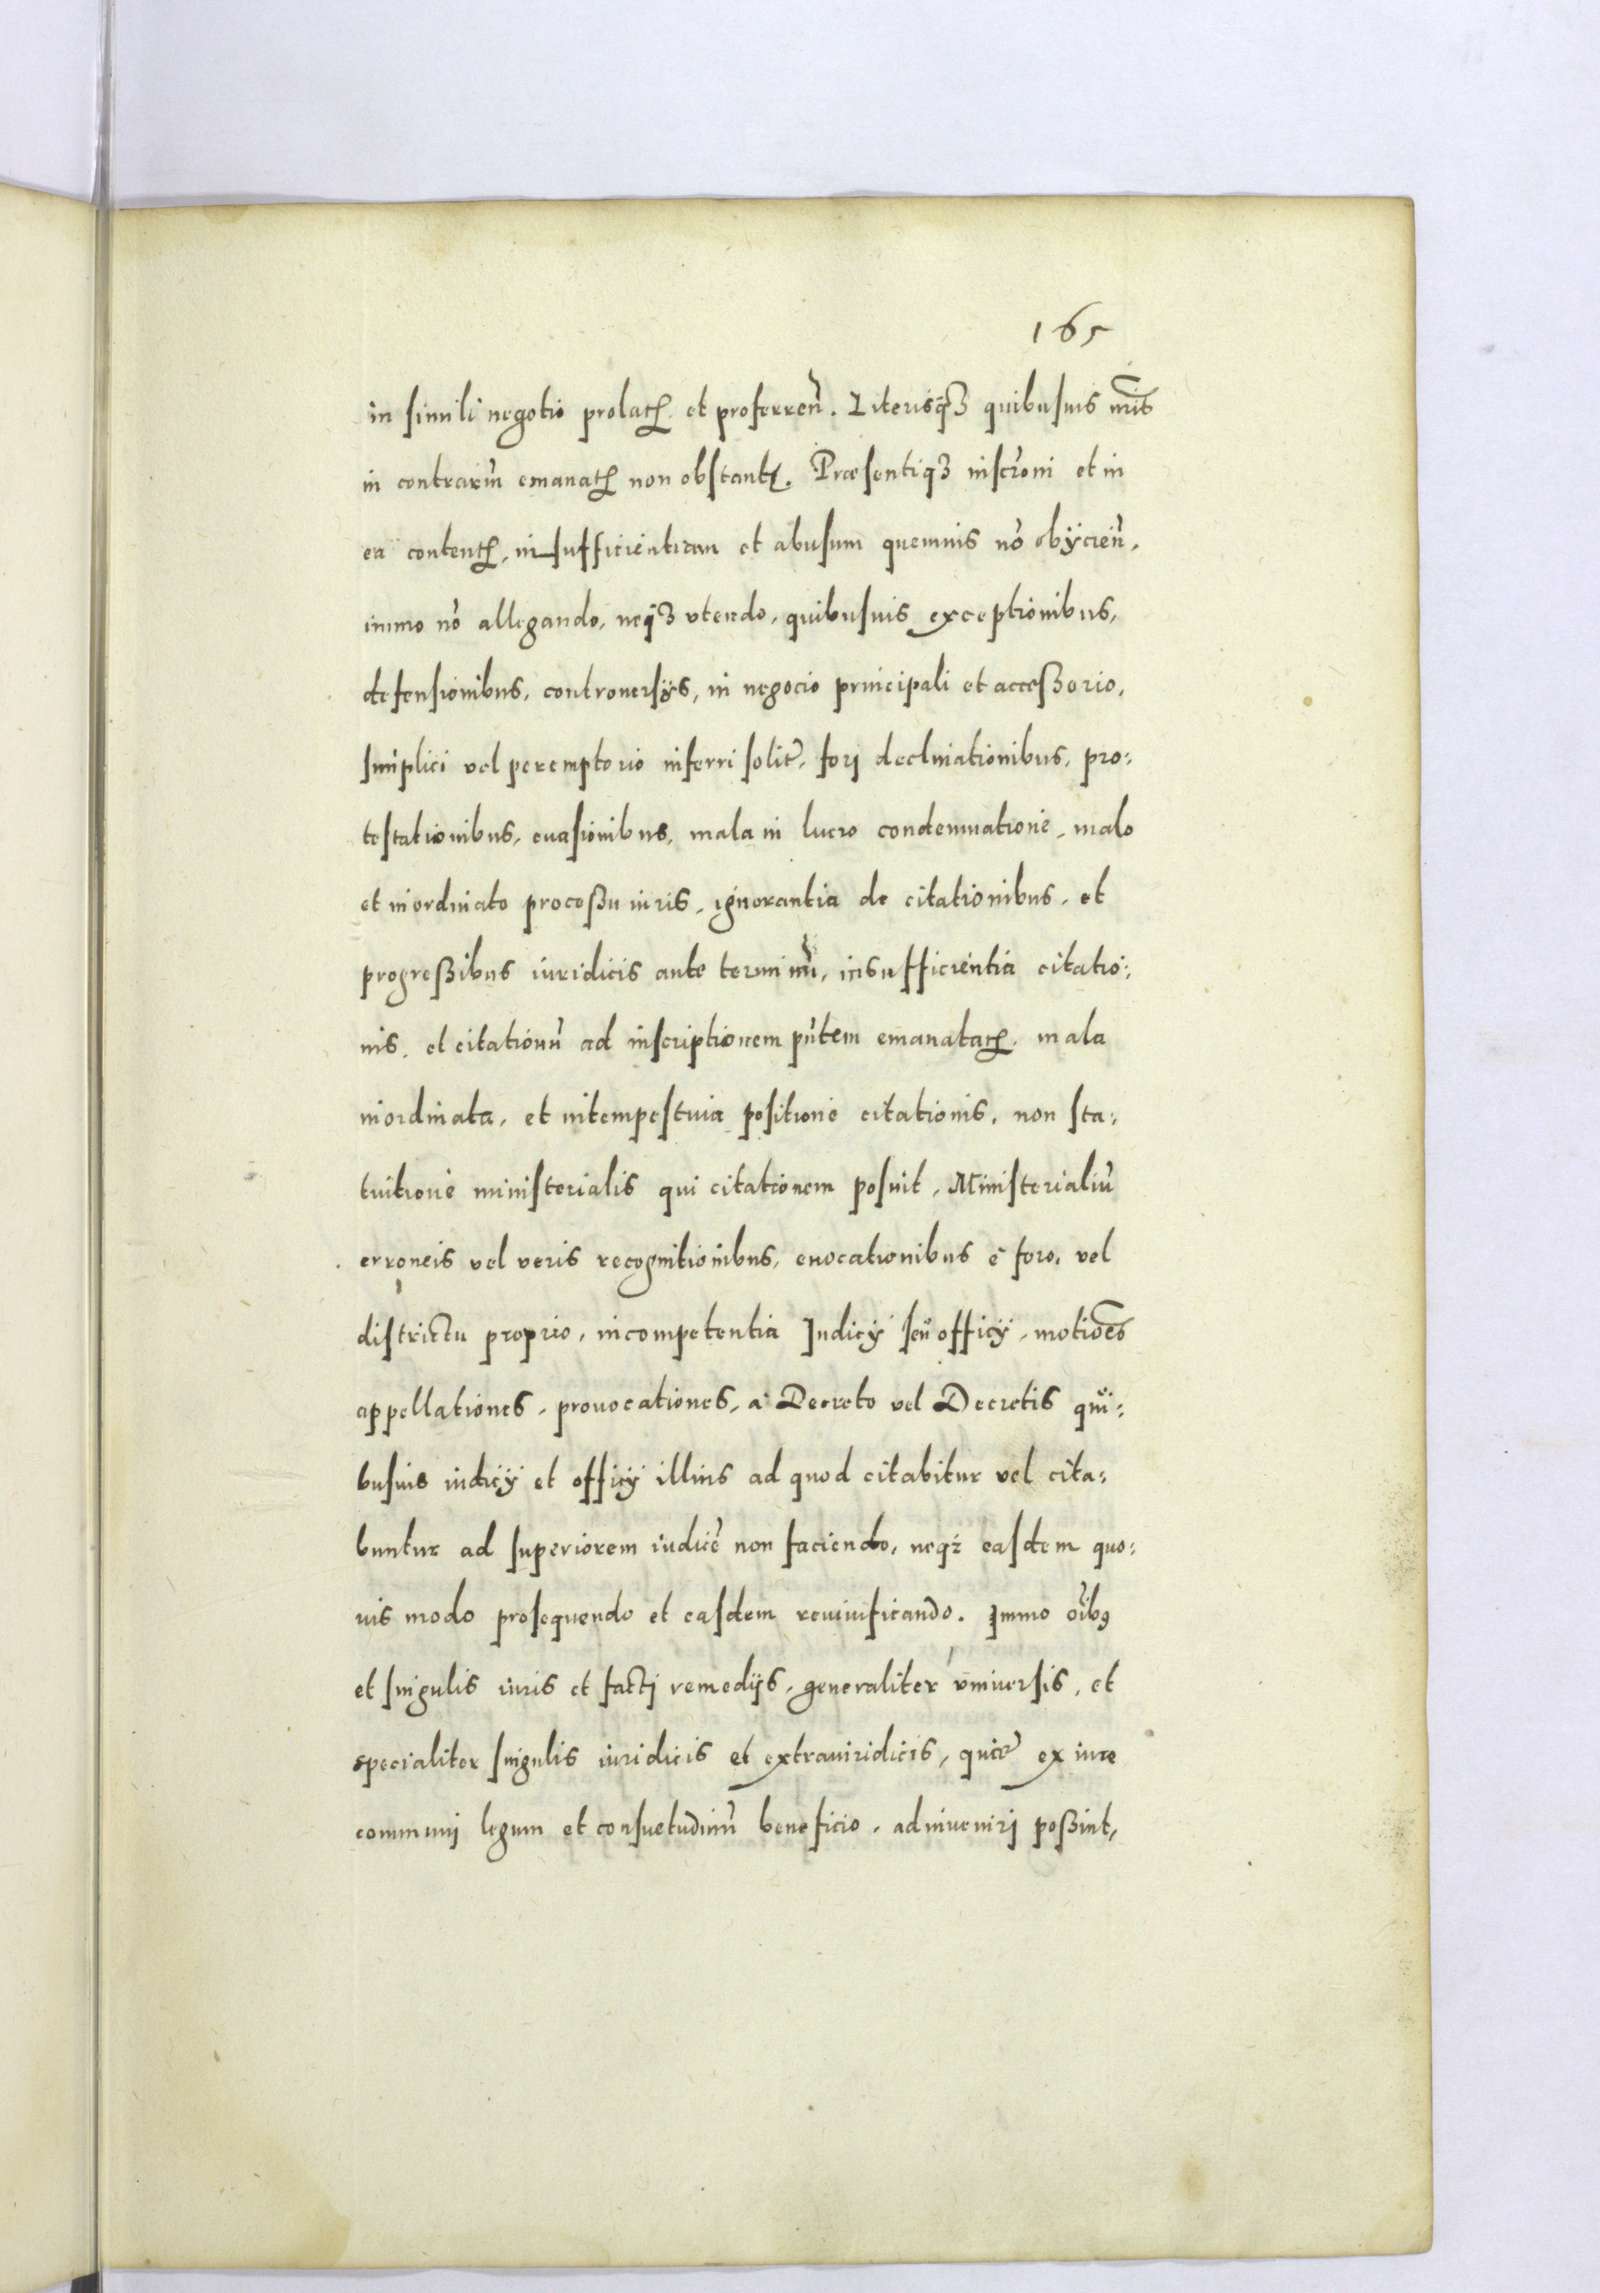 165
in simili negotio prolatꝝ et proferreñ. Literisqꝫ quibusuis nr̃is
in contrariũ emanatꝝ non obstantꝭ. Præsentiqꝫ inscr̃oni et in
ea contentꝝ, insufficientiam et abusum quemuis nõ obÿcieñ,
immo nõ allegando, neqꝫ vtendo, quibusuis exceptionibus,
defensionibus, controuersÿs, in negocio principali et acceßorio,
simplici vel peremptorio inferri solit̃, forj declinationibus, pro:
testationibus, euasionibus, mala in lucro condemnatione, malo
et inordinato proceßu iuris, ignorantia de citationibus, et
progreßibus iuridicis ante terminũ, insufficientia citatio:
nis, et citationũ ad inscriptionem pñtem emanataꝝ, mala
inordinata, et intempestiua positione citationis, non sta:
tuitione ministerialis qui citationem posuit, Ministerialiũ
erroneis vel veris recognitionibus, euocationibus è foro, vel
districtu proprio, incompetentia Iudicÿ seu officÿ, motiões
appellationes, prouocationes, à Decreto vel Decretis qui:
busuis iudicÿ et officÿ illius ad quod citabitur vel cita:
buntur ad superiorem iudicẽ non faciendo, neqꝫ easdem quo:
uis modo prosequendo et easdem reuiuificando. Immo oĩbꝰ
et singulis iuris et factj remedijs, generaliter vniuersis, et
specialiter singulis iuridicis et extraiuridicis, quæ ex iure
communj legum et consuetudinũ beneficio, adinuenirj poßint,